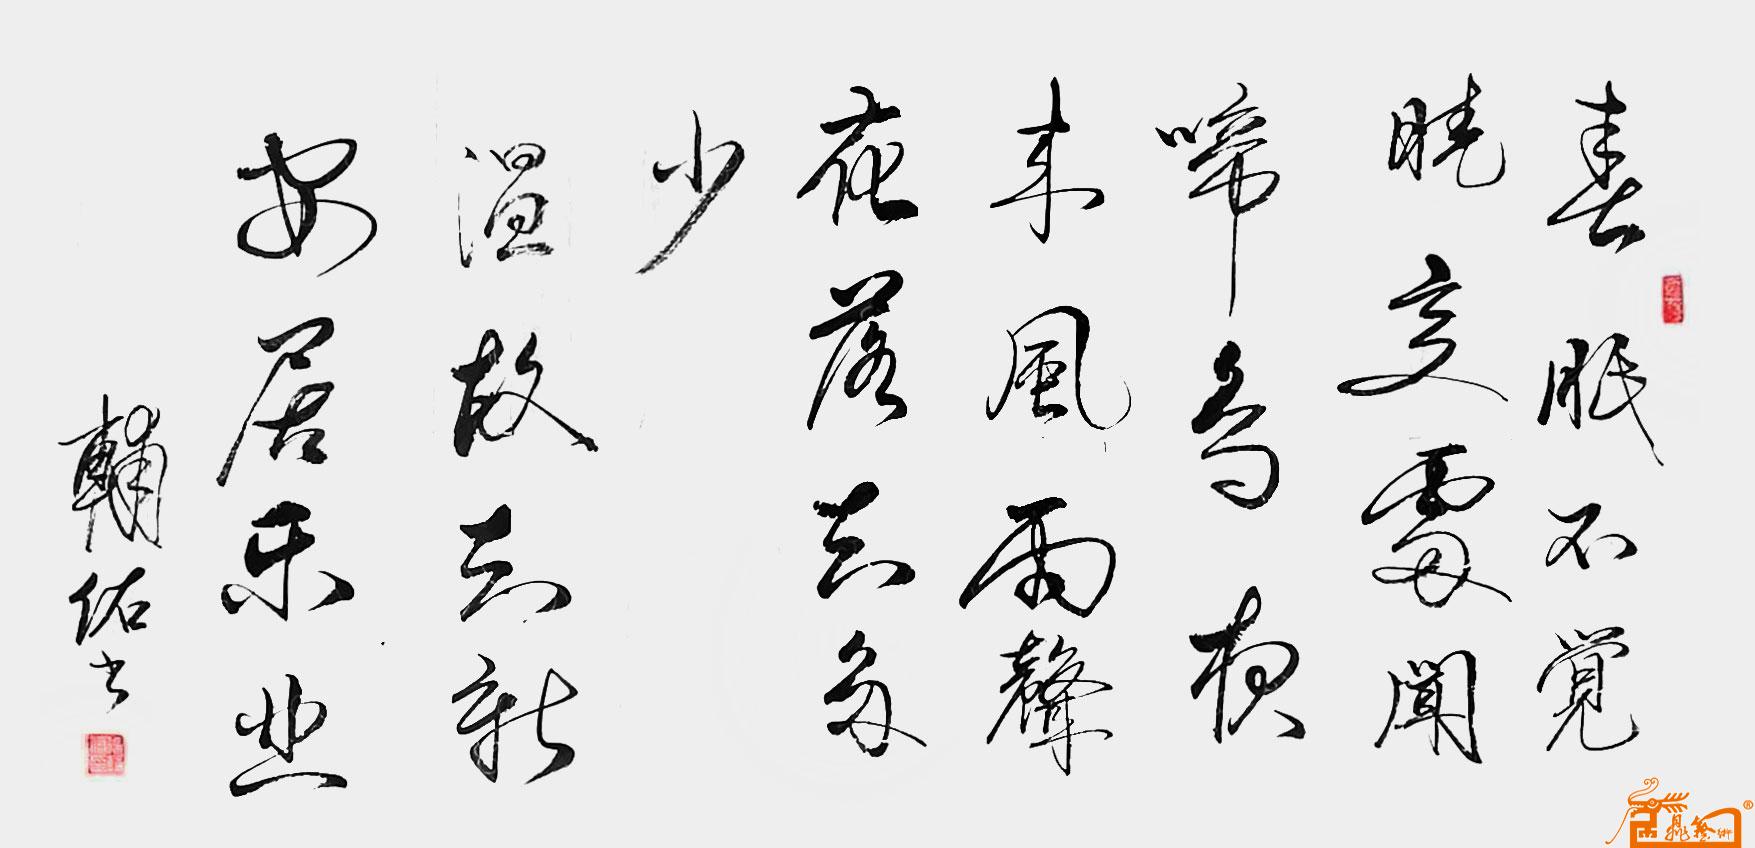 春眠不覺
曉處處聞
啼鳥夜
来風雨聲
花落知多
少
温故知新
安居乐业
輔佑书